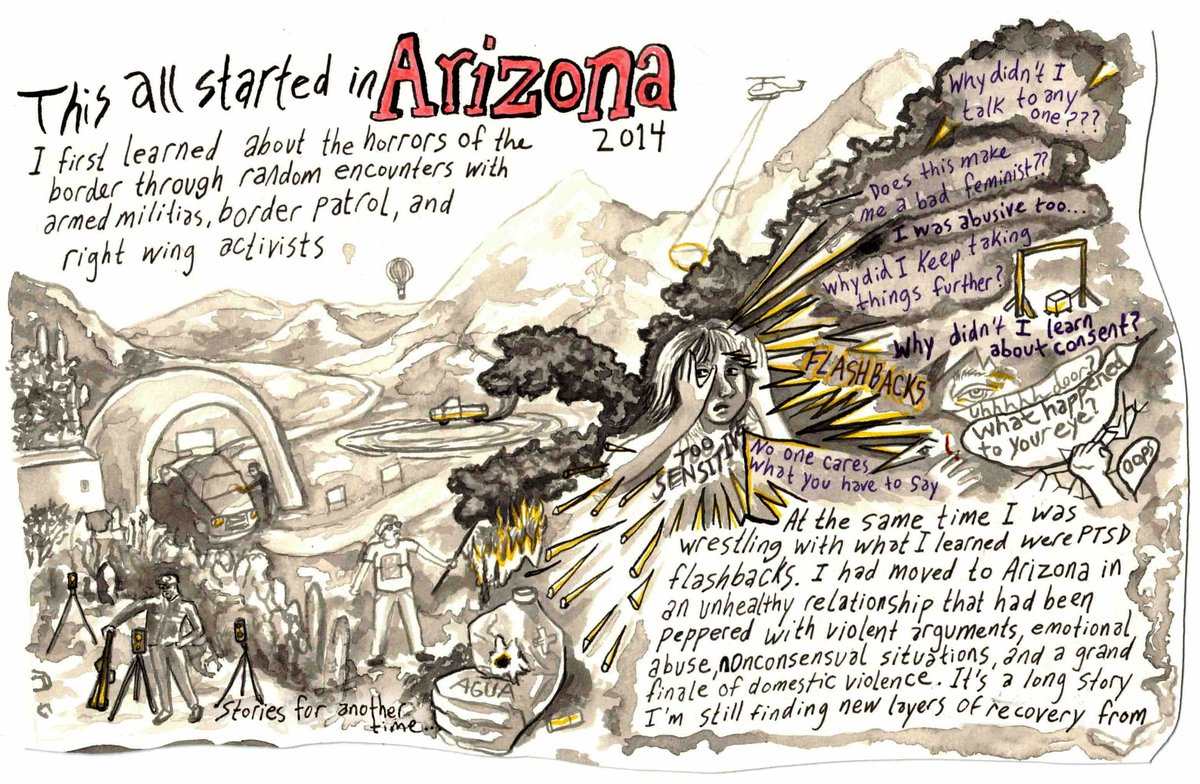 This all started in Arizona
2014
I first learned about the horrors of the
border through random encounters with
armed militias, border patrol, and
right wing activists
Why didn't I
talk to any
one???
Does this make
me a bad feminist??
I was abusive too...
why did I keep taking
things further?
Why didn't I learn
about consent?
FLASHBACKS
uhhhhh door?
what happened
to your eye?
OOPS
TOO
SENSITIV
No one cares
what you have to say
AGUA
Stories for another
time...
At the same time I was
wrestling with what I learned were PTSD
flashbacks. I had moved to Arizona in
an unhealthy relationship that had been
peppered with violent arguments, emotional
abuse, nonconsensual situations, and a grand
finale of domestic violence. It's a long story
I'm still finding new layers of recovery from